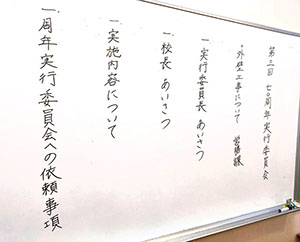 第三回 七〇周年実行委員会
・外壁工事について
一 実行委員長 あいさつ
一 校長 あいさつ
一 実施内容について
一 周年実行委員会への依頼事項